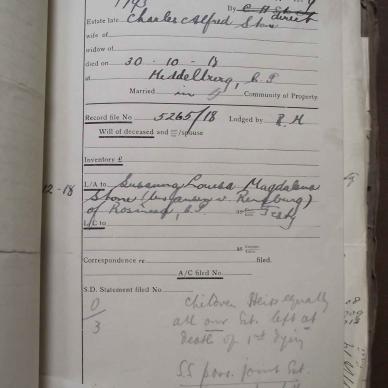 1943 By C H Stone direct
Estate late Charles Alfred Stone
wife of
widow of
died on 30-10-18
at Middelburg, C.P
Married in Community of Property.
Record file No 5265/18 Lodged by R.M
Will of deceased and /spouse
Inventory £
12-18 L/A to Susanna Louisa Magdalena
Stone (
of Rosmead, C.P. as Testy
L/C to
as
Correspondence re filed.
A/C filed No.
S.D. Statement filed No
0 Children Heirs equally
3 all our Est. left at
death of 1st dying
SS pors. joint Est.